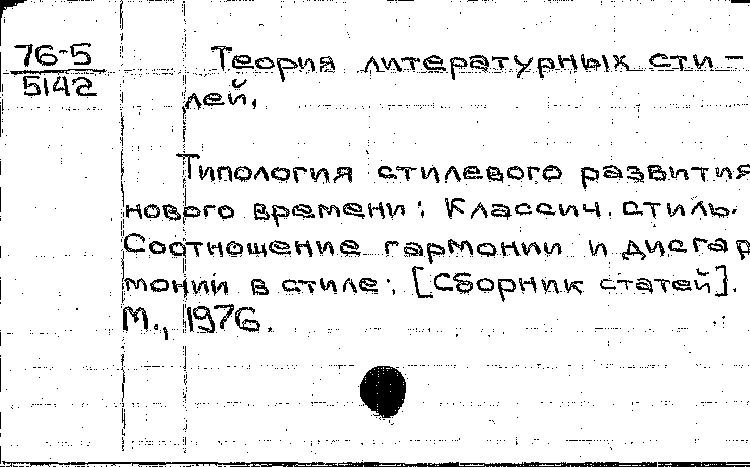 76-5
5142
Теория литературных сти-
лей.
Типология стилевого развития
нового времени: Классич. стиль.
Соотношение гармонии и дисгар
монии в стиле: [Сборник статей].
М., 1976.